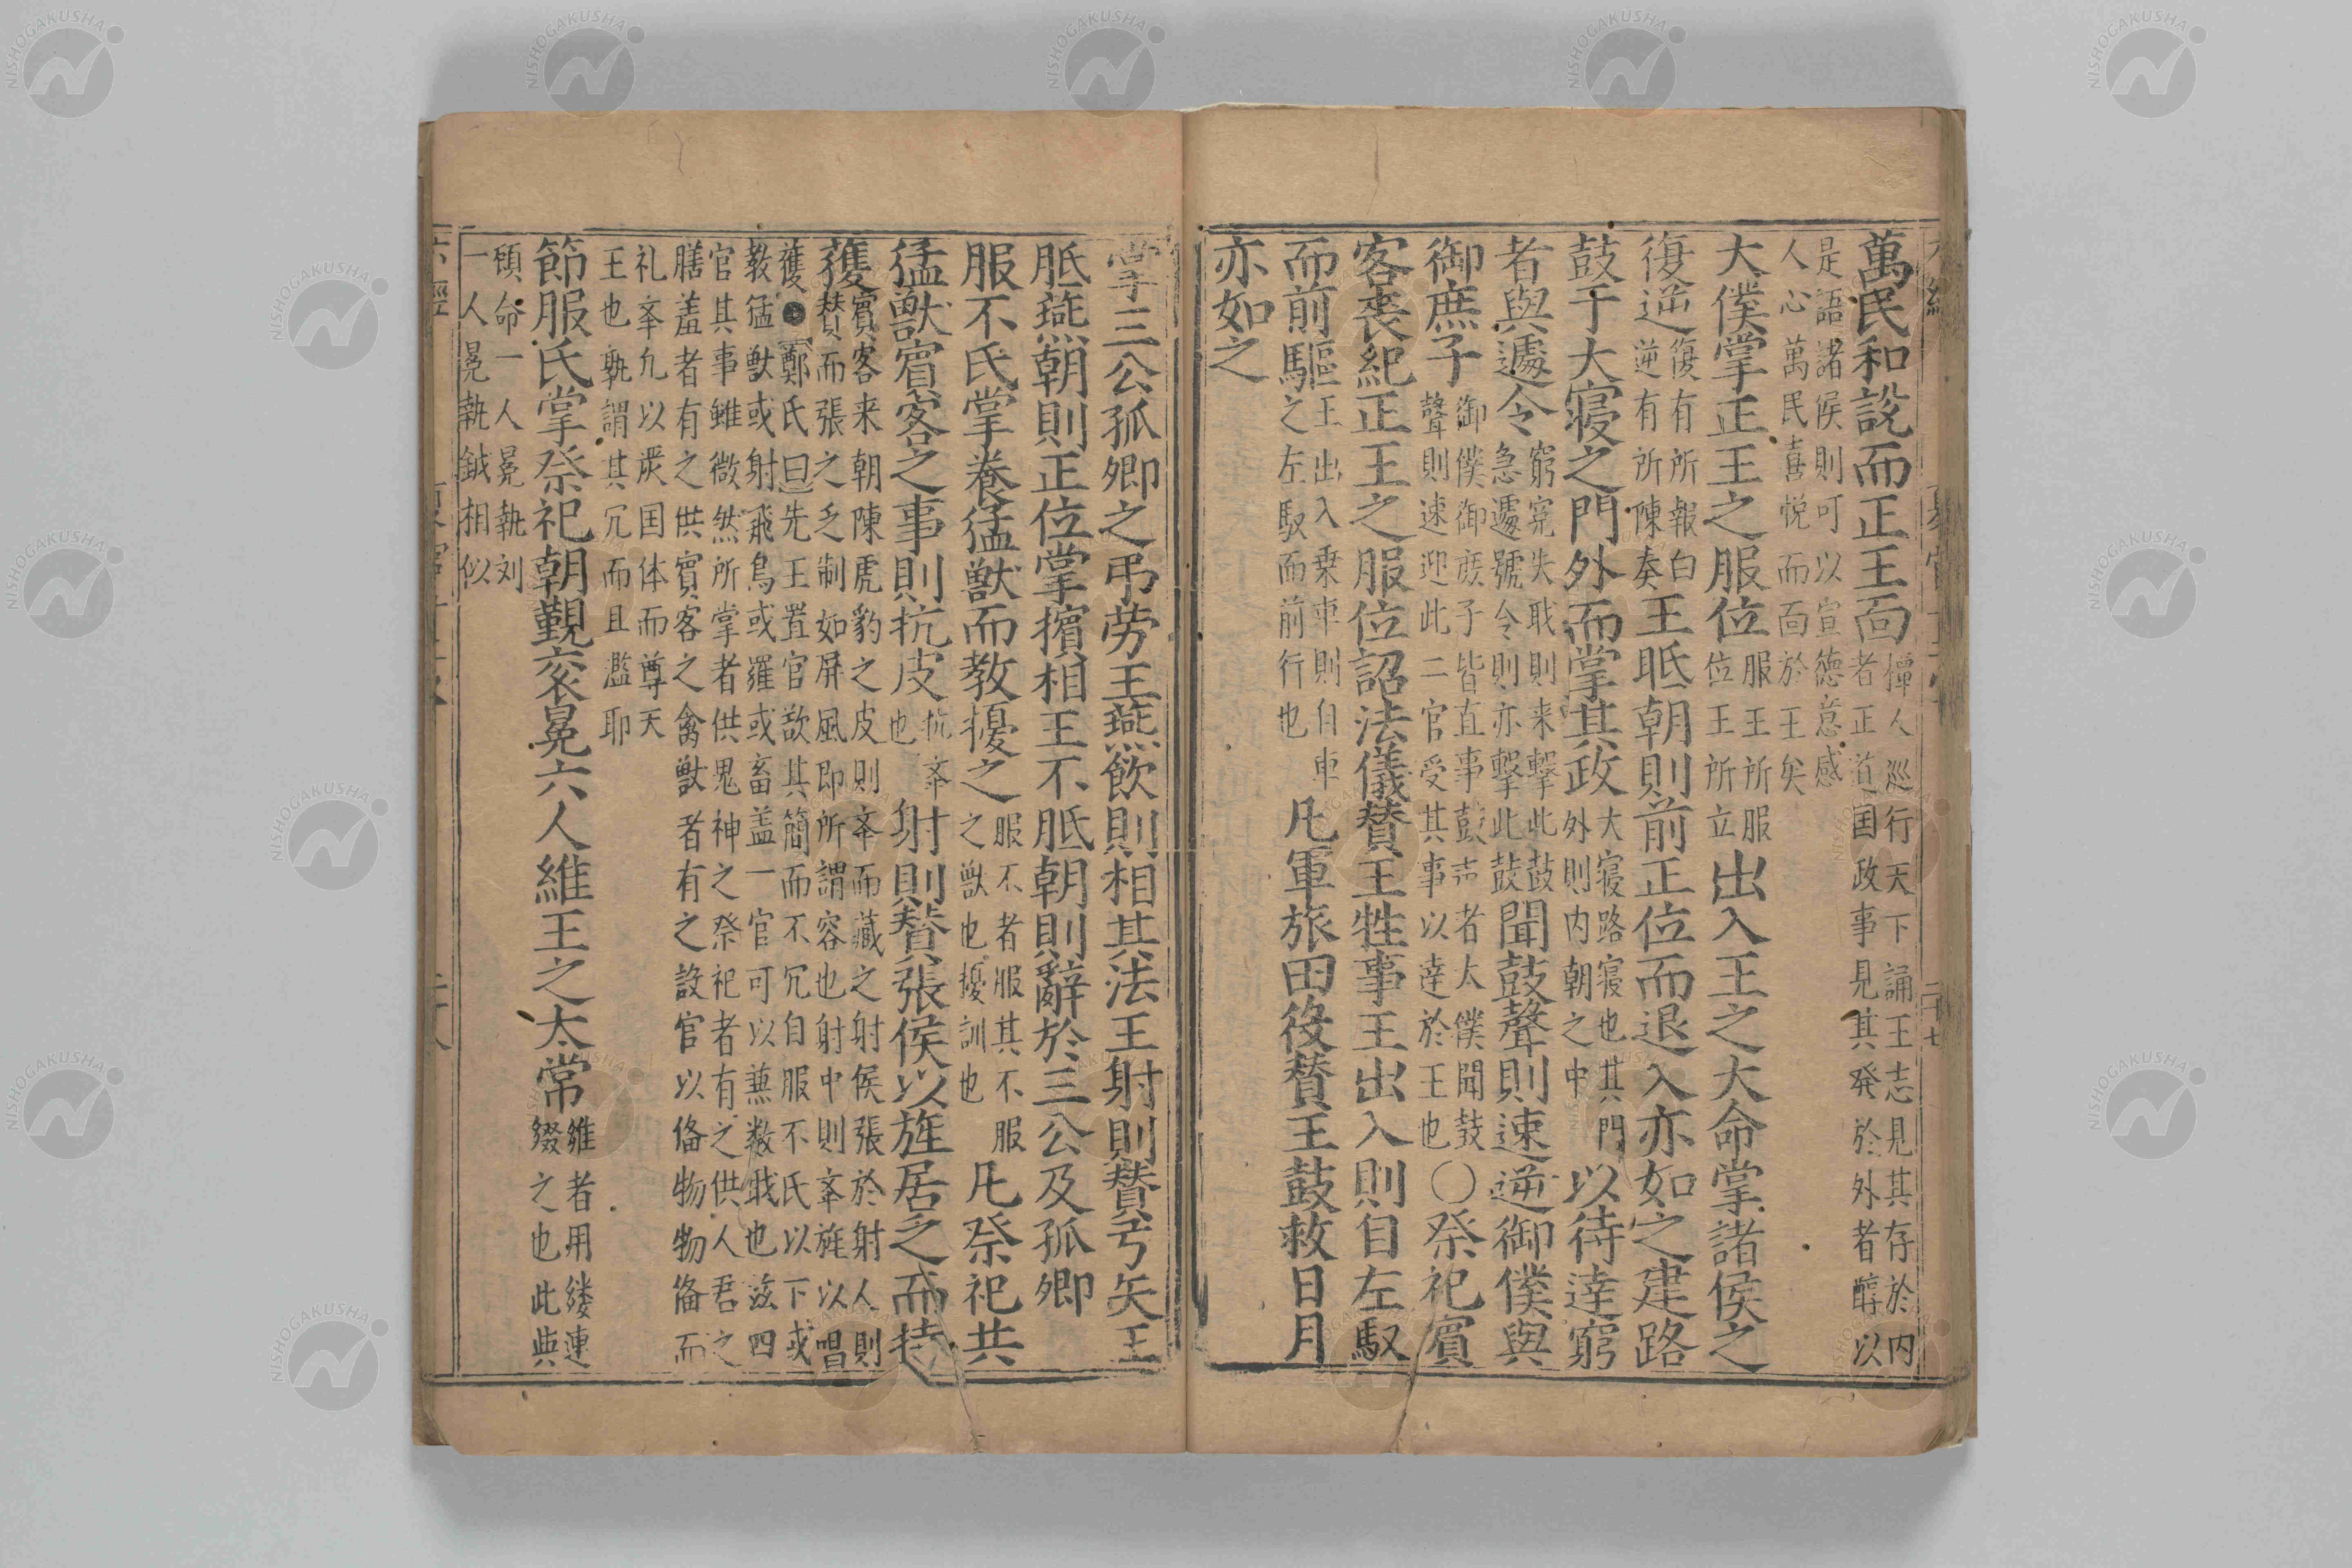 萬民和說而正王面撢人巡行天下誦王志見其存於内
者正道国政事見其発於外者醇以
是語諸侯則可以宣徳意感
人心萬民喜悦而面於王矣
大僕掌正王之服位服王所服
位王所立出入王之大命掌諸侯之
復逆復有所報白
逆有所陳奏王眂朝則前正位而退入亦如之建路
鼓于大寝之門外而掌其政大寝路寝也其門
外則内朝之中以待達窮
者與遽令窮寃失職則来撃此鼓
急遽號令則亦撃此鼓聞鼓聲則速逆御僕與
御庶子御僕御庶子皆直事鼓声者太僕聞鼓
聲則速迎此二官受其事以達於王也〇祭祀賓
客喪紀正王之服位詔法儀賛王牲事王出入則自左馭
而前驅王出入乗車則自車
之左馭而前行也凡軍旅田役賛王鼓救日月
亦如之
掌三公孤卿之弔勞王燕飲則相其法王射則賛弓矢王
眂燕朝則正位掌擯相王不眂朝則辭於三公及孤卿
服不氏掌養猛獣而教擾之服不者服其不服
之獣也擾訓也凡祭祀共
猛獣賓客之事則抗皮抗举
也射則賛張侯以旌居乏而待
獲賓客来朝陳虎豹之皮則举而藏之射侯張於射人則
賛而張之乏制如屏風即所謂容也射中則举旌以唱
獲●鄭氏曰先王置官欲其簡而不冗自服不氏以下或
教猛獣或射飛鳥或羅或畜盖一官可以兼数職也茲四
官其事雖微然所掌者供鬼神之祭祀者有之供人君之
膳羞者有之供賓客之禽獣者有之設官以俻物物俻而
礼举凢以炭国体而尊天
王也孰謂其冗而且濫耶
節服氏掌祭祀朝覲衮冕六人維王之太常維者用縷連
綴之也此與
頋命一人冕執刘
一人冕執鉞相似
二十七